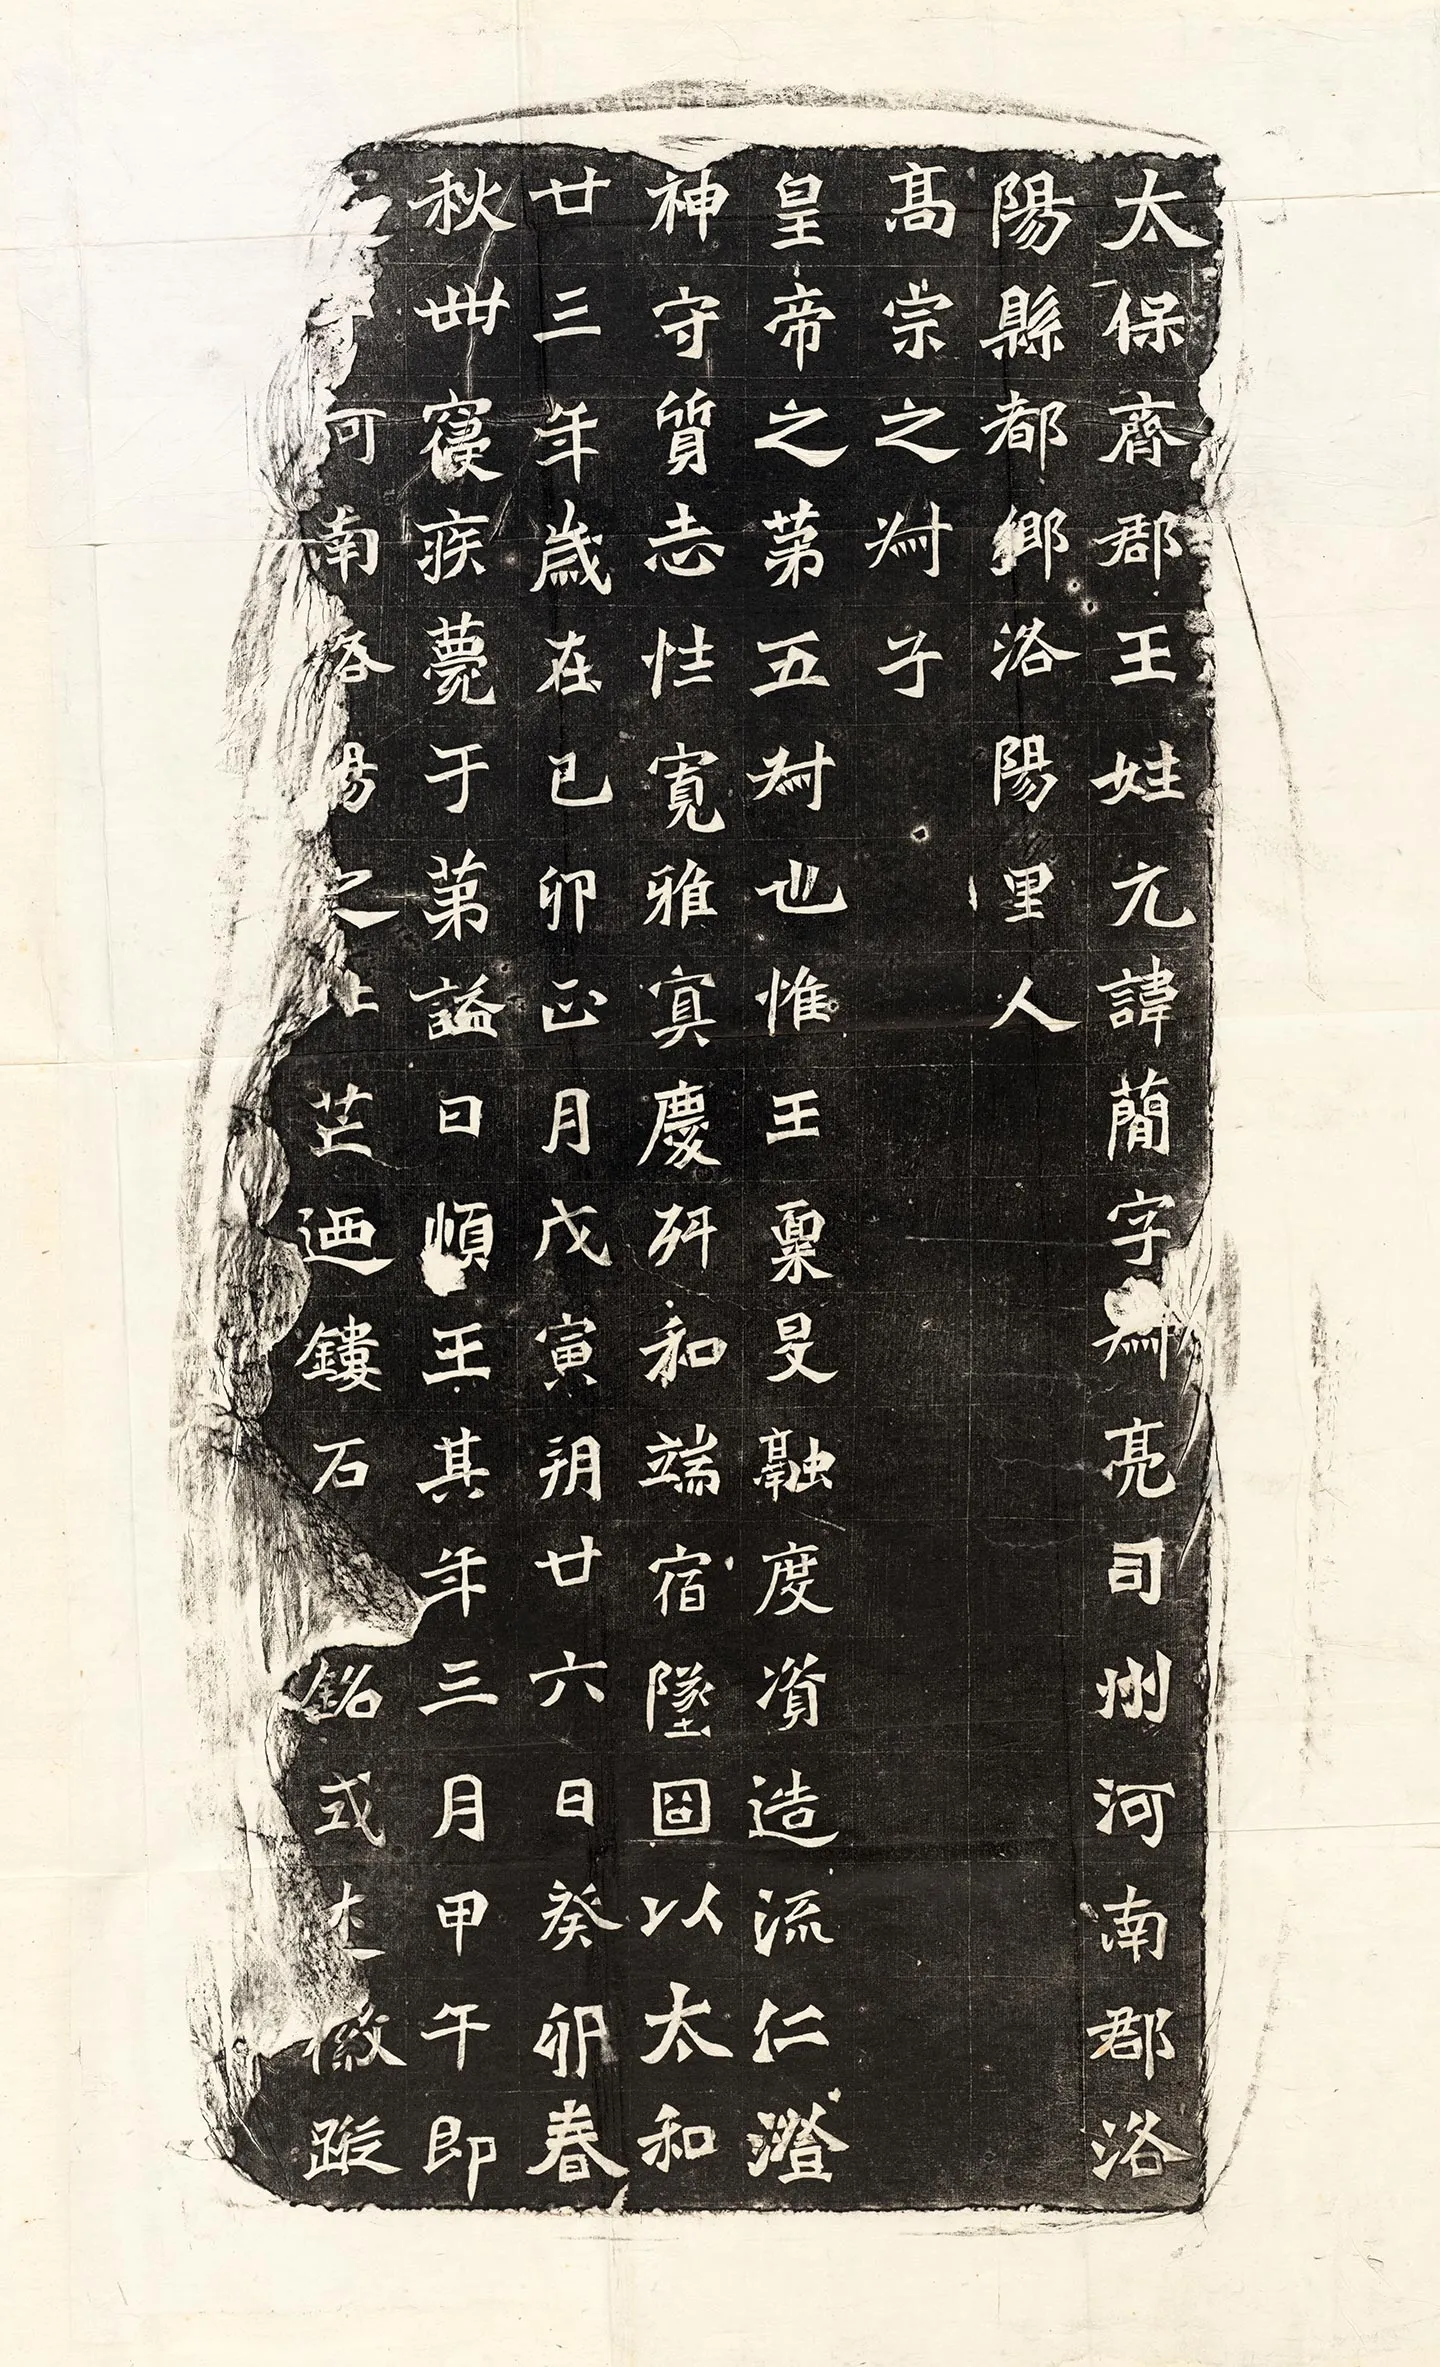 太保齊郡王姓元諱蕳字叔亮司州河南郡洛
陽縣都鄉洛陽里人
高宗之叔子
皇帝之第五叔也惟王稟旻融度資造流仁澄
神守質志性寬雅寡慶舛和端宿墜固以太和
廿三年歲在己卯正月戊寅朔廿六日癸卯春
秋卌寢疾薨于第謚曰順王其年三月甲午即
窆于河南洛陽之北芒迺鏤石銘式述徽蹤